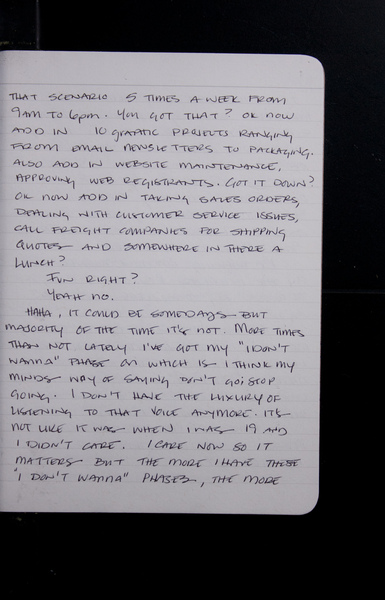 THAT SCENARIO 5 TIMES A WEEK FROM
9AM TO 6PM. YOU GOT THAT? OK NOW
ADD IN 10 GRAPHIC PROJECTS RANGING
FROM EMAIL NEWSLETTERS TO PACKAGING.
ALSO ADD IN WEBSITE MAINTENANCE,
APPROVING WEB REGISTRANTS. GOT IT DOWN?
OK NOW ADD IN TAKING SALES ORDERS,
DEALING WITH CUSTOMER SERVICE ISSUES,
CALL FREIGHT COMPANIES FOR SHIPPING
QUOTES AND SOMEWHERE IN THERE A
LUNCH?
FUN RIGHT?
YEAH NO.
HAHA, IT COULD BE SOMEDAYS BUT
MAJORITY OF THE TIME IT'S NOT. MORE TIMES
THAN NOT LATELY I'VE GOT MY "I DON'T
WANNA" PHASE ON WHICH IS I THINK MY
MINDS WAY OF SAYING DON'T GO! STOP
GOING. I DON'T HAVE THE LUXURY OF
LISTENING TO THAT VOICE ANYMORE. IT'S
NOT LIKE IT WAS WHEN I WAS 19 AND
I DIDN'T CARE. I CARE NOW SO IT
MATTERS BUT THE MORE I HAVE THESE
"I DON'T WANNA" PHASES, THE MORE